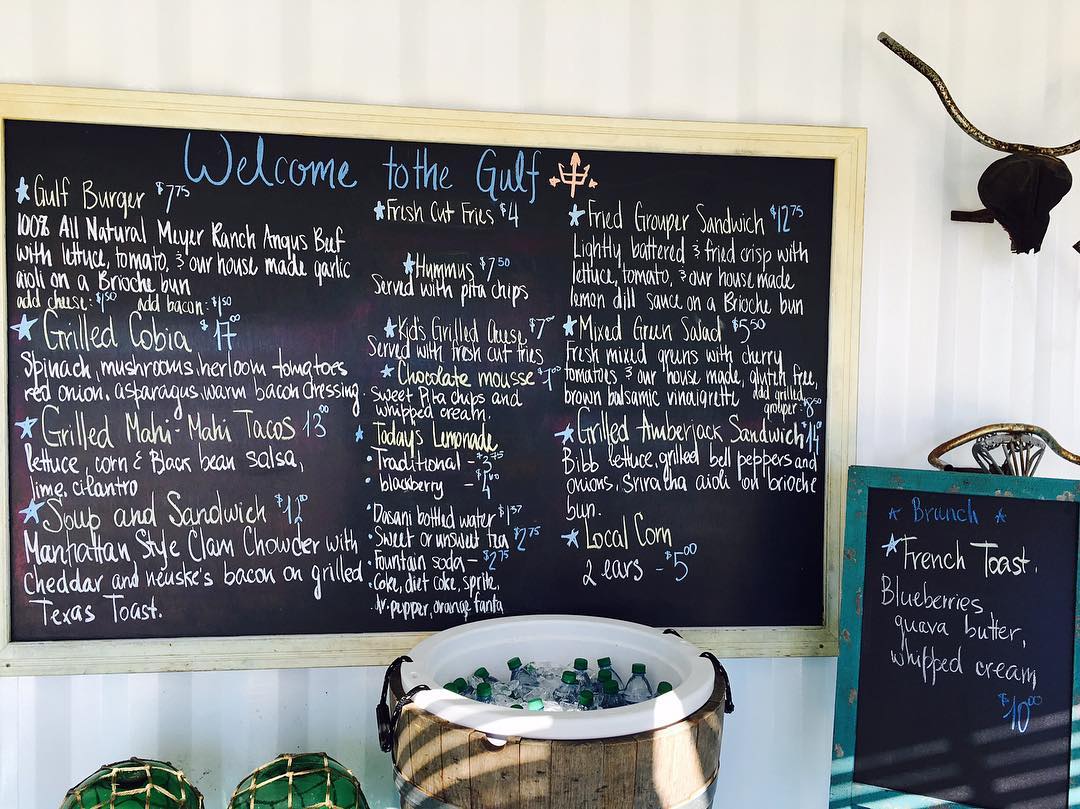 Welcome to the Gulf
Gulf Burger $7.75
100% All Natural Meyer Ranch Angus Beef
with lettuce, tomato, & our house made garlic
aioli on a Brioche bun
add cheese: $1.50 add bacon: $1.50
Grilled Cobia $17.00
Spinach, mushrooms, heirloom tomatoes
red onion, asparagus, warm bacon dressing.
Grilled Mahi-Mahi Tacos 13
lettuce, corn & Black bean salsa,
lime, cilantro
Soup and Sandwich
Manhattan Style Clam Chowder with
cheddar and neuske's bacon on grilled
Texas Toast.
Fresh Cut Fries $4
Hummus $7.50
Served with pita chips
Kid's Grilled Cheese $7
Served with fresh cut fries
Chocolate mousse
Sweet Pita chips and
whipped cream.
Today's Lemonade
Traditional -
blackberry -
Dasani bottled water
Sweet or unsweet tea $2.75
Fountain soda - $2.75
Coke, diet coke, sprite,
dr. pupper, orange fanta
Fried Grouper Sandwich $12.75
Lightly battered & fried crisp with
lettuce, tomato, & our house made
lemon dill sauce on a Brioche bun
Mixed Green Salad $5.50
Fresh mixed greens with cherry
tomatoes & our house made, gluten free,
brown balsamic vinaigrette add grilled
grouper: $8.50
Grilled Amberjack Sandwich $14
Bibb lettuce, grilled bell peppers and
onions, Sriracha aioli on brioche
bun.
Local Corn
2 ears - $5.00
Brunch
French Toast.
Blueberries
guava butter,
whipped cream
$10.00